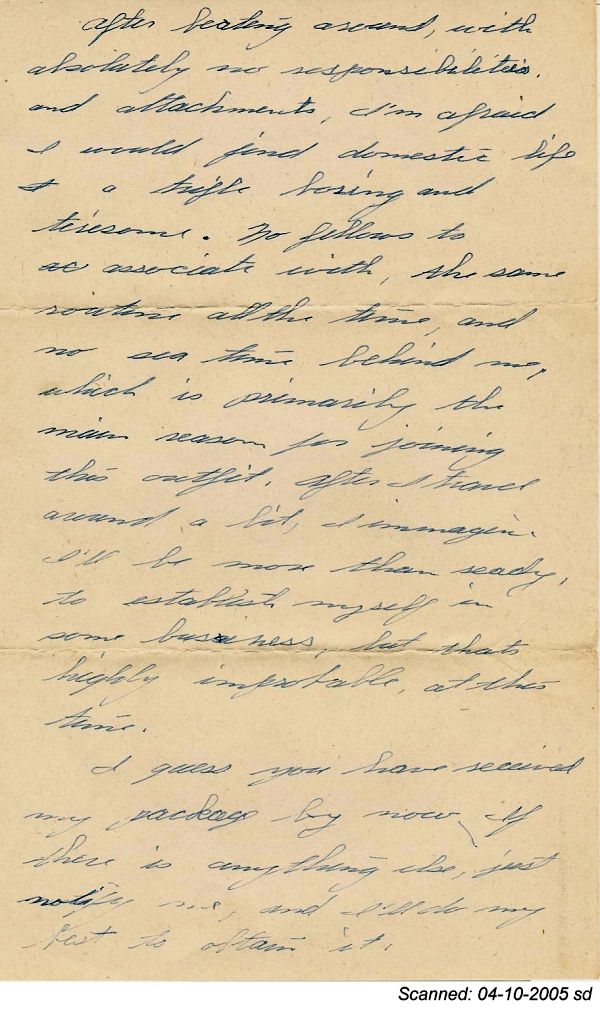 After beating around, with
absolutely no responsibilities,
and attachments, I'm afraid
I would find domestic life
a trifle boring and
tiresome. No fellows to
associate with, the same
routine all the time, and
no sea time behind me,
which is primarily the
main reason for joining
this outfit. After I travel
around a bit, I immagin.
I'll be more than ready,
to establish myself in
some business, but thats
highly improbable, at this
time.
I guess you have received
my package by now. If
there is anything else, just
notify me, and I'll do my
best to obtain it.
Scanned: 04-10-2005 sd